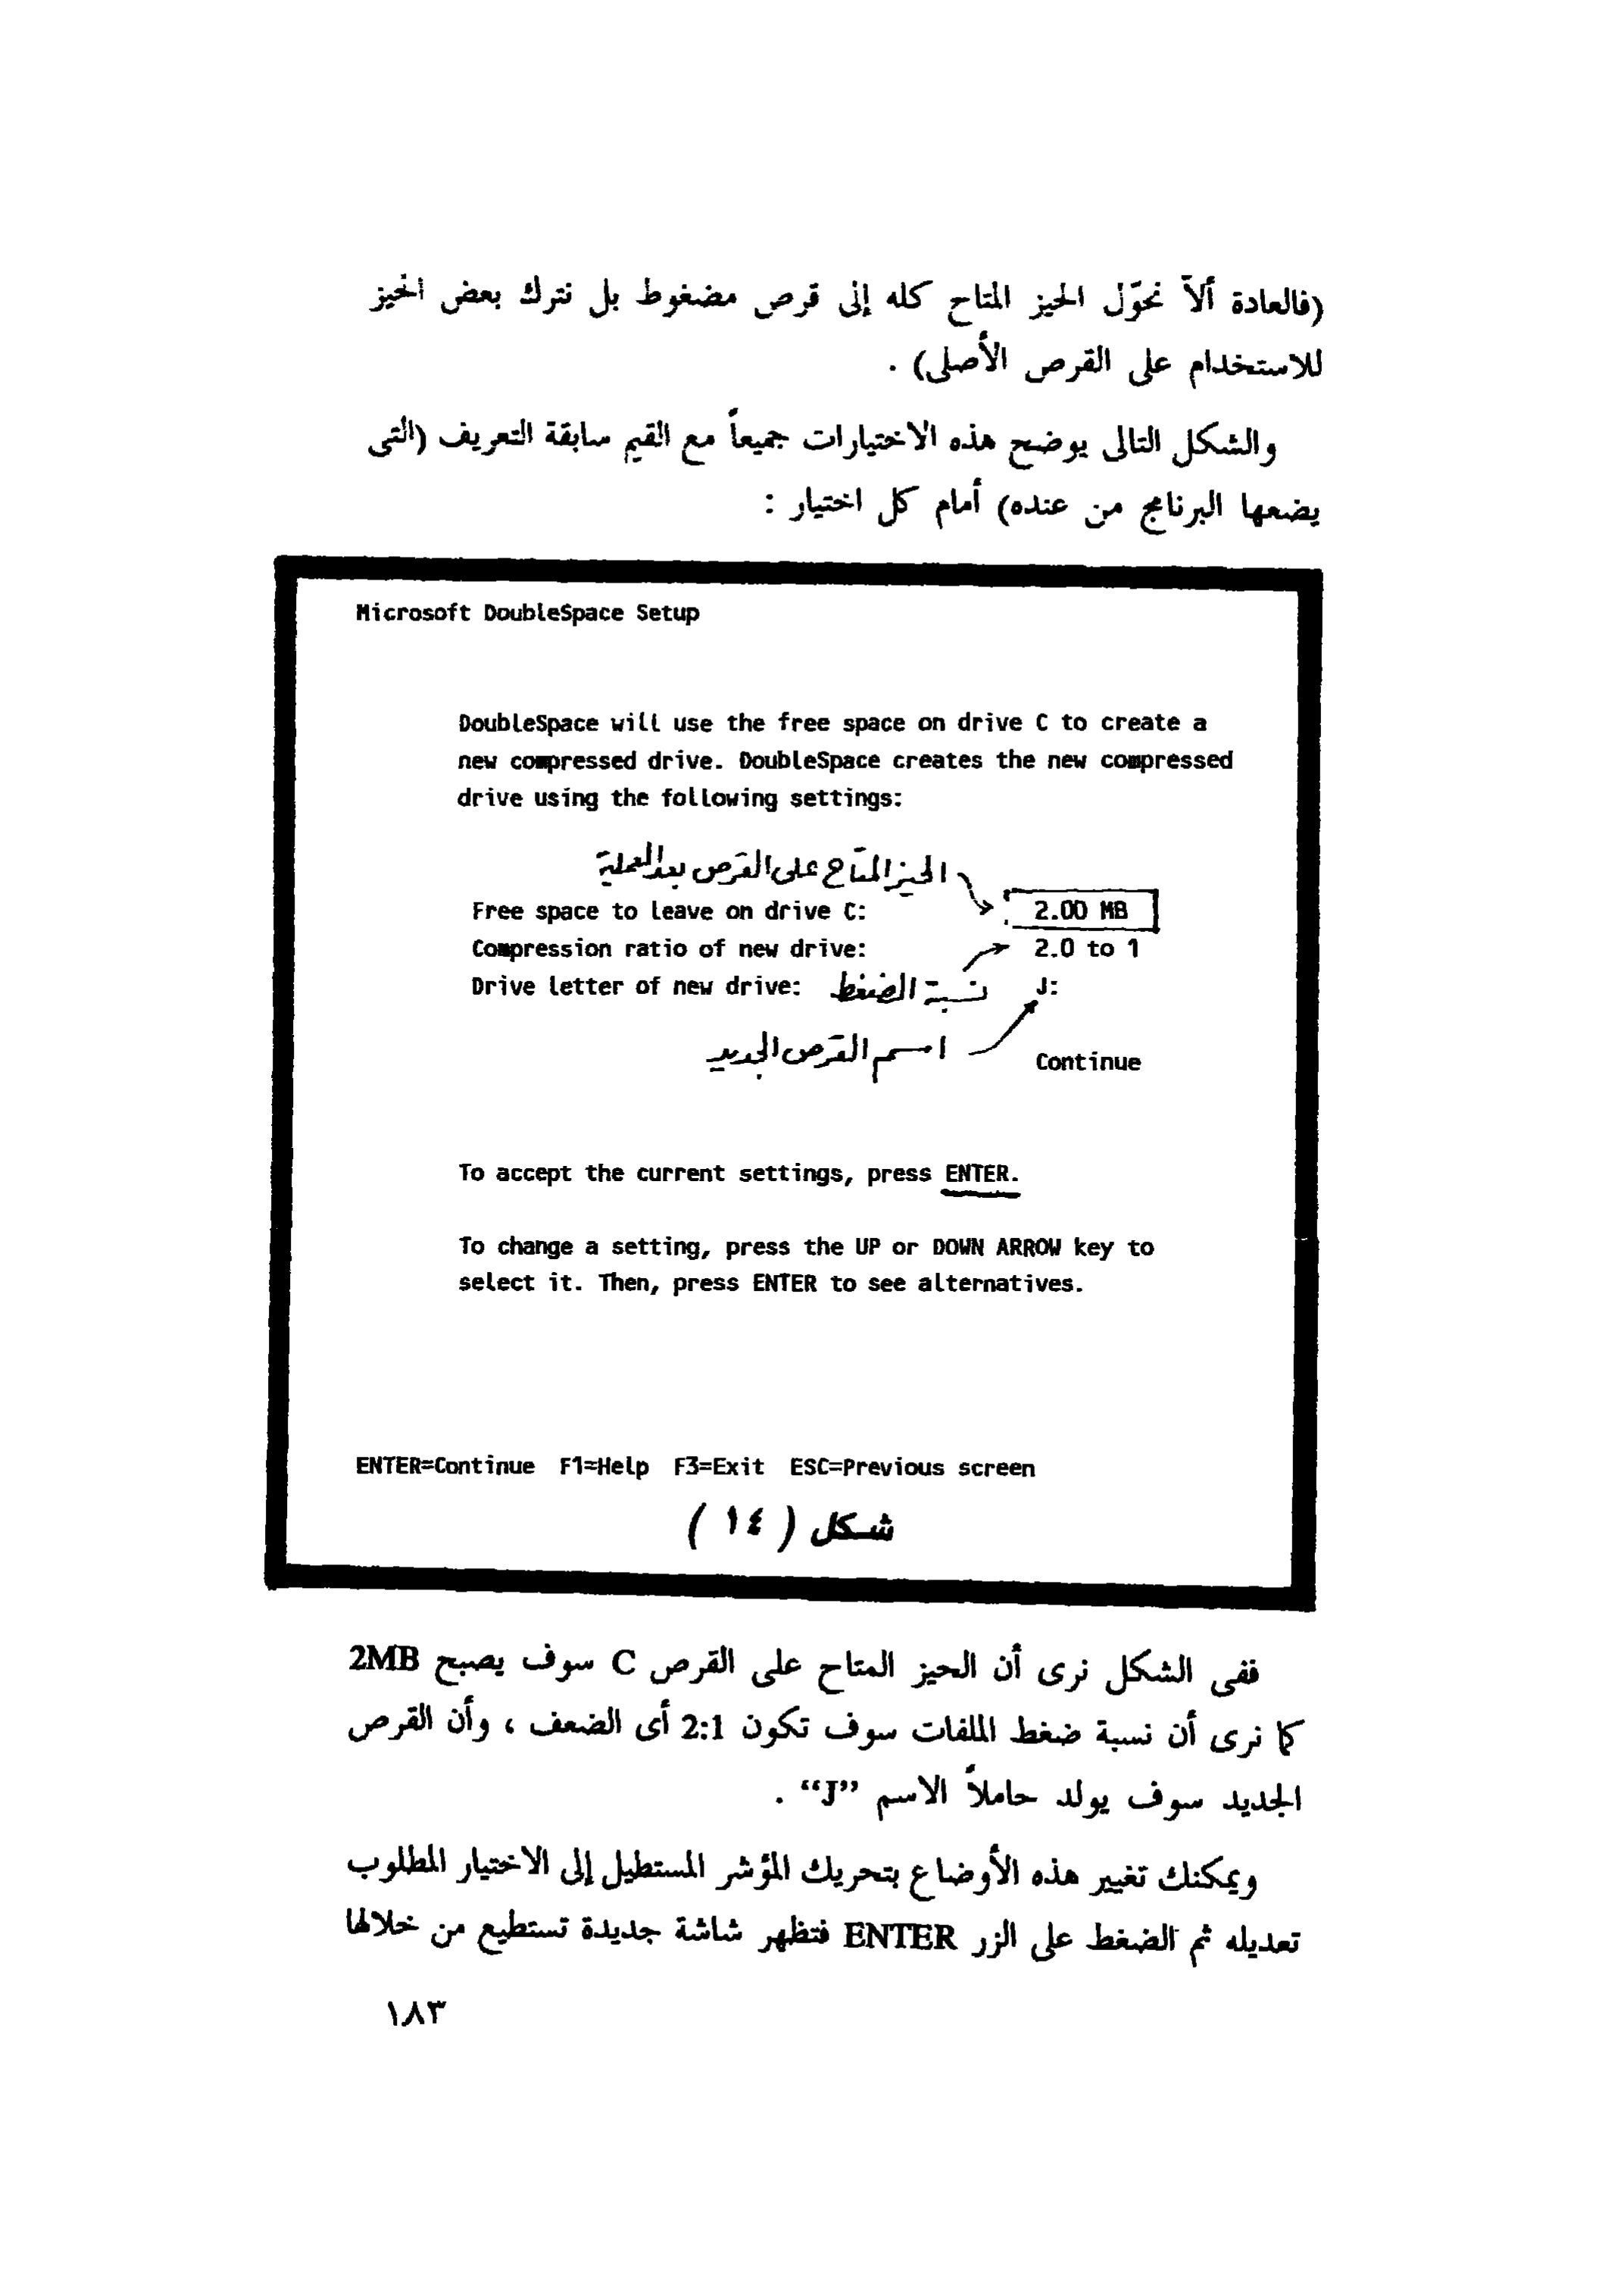 (فالعادة ألاّ نحوّل الحيز المتاح كله إلى قرص مضغوط بل نترك بعض الحيز
للاستخدام على القرص الأصلى) .
والشكل التالى يوضح هذه الاختيارات جميعاً مع القيم سابقة التعريف (التى
يضعها البرنامج من عنده) أمام كل اختيار :
Microsoft DoubleSpace Setup
DoubleSpace will use the free space on drive C to create a
new compressed drive. DoubleSpace creates the new compressed
drive using the following settings:
الحيز المتاح على القرص بعد العملية
Free space to leave on drive C: 2.00 MB
Compression ratio of new drive: 2.0 to 1
Drive letter of new drive: نسبة الضغط J:
اسم القرص الجديد
Continue
To accept the current settings, press ENTER.
To change a setting, press the UP or DOWN ARROW key to
select it. Then, press ENTER to see alternatives.
ENTER=Continue F1=Help F3=Exit ESC=Previous screen
شكل ( ١٤ )
ففى الشكل نرى أن الحيز المتاح على القرص C سوف يصبح 2MB
كما نرى أن نسبة ضغط الملفات سوف تكون 2:1 أى الضعف ، وأن القرص
الجديد سوف يولد حاملاً الاسم “J” .
ويمكنك تغيير هذه الأوضاع بتحريك المؤشر المستطيل إلى الاختيار المطلوب
تعديله ثم الضغط على الزر ENTER فتظهر شاشة جديدة تستطيع من خلالها
١٨٣